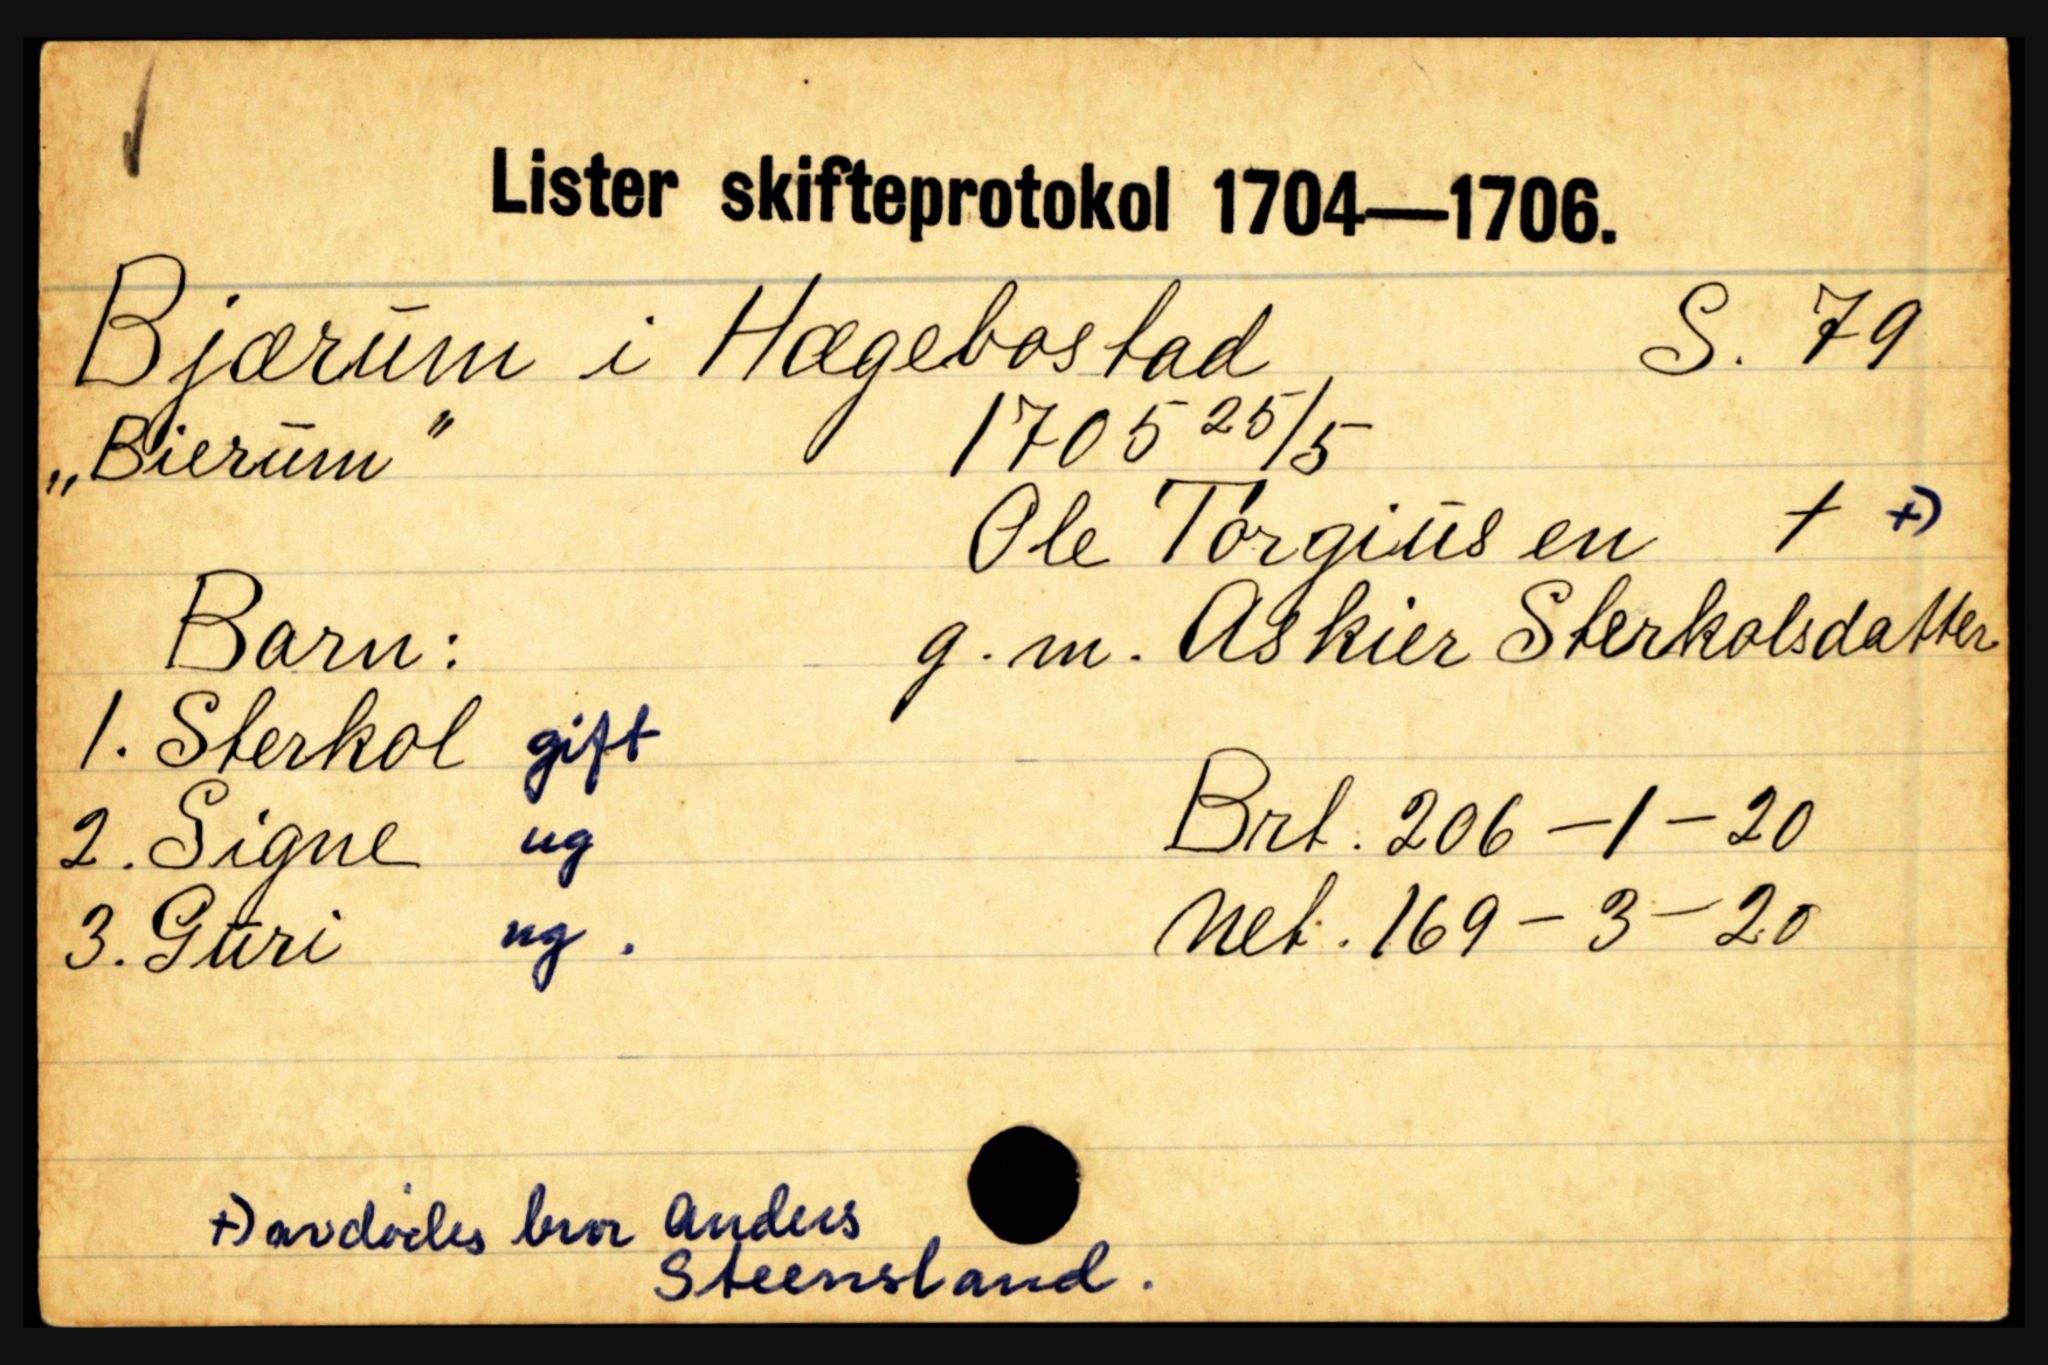 Lister skifteprotokol 1704—1706.
Bjærum i Hægebostad S. 79
„Bierum" 1705 25/5
Ole Torgiusen † +)
Barn: g. m. Askier Sterkolsdatter
1. Sterkol gift
2. Signe ug Brt. 206 – 1 – 20
3. Guri ug. Net. 169 – 3 – 20
+) avdødes bror Anders
Steensland.